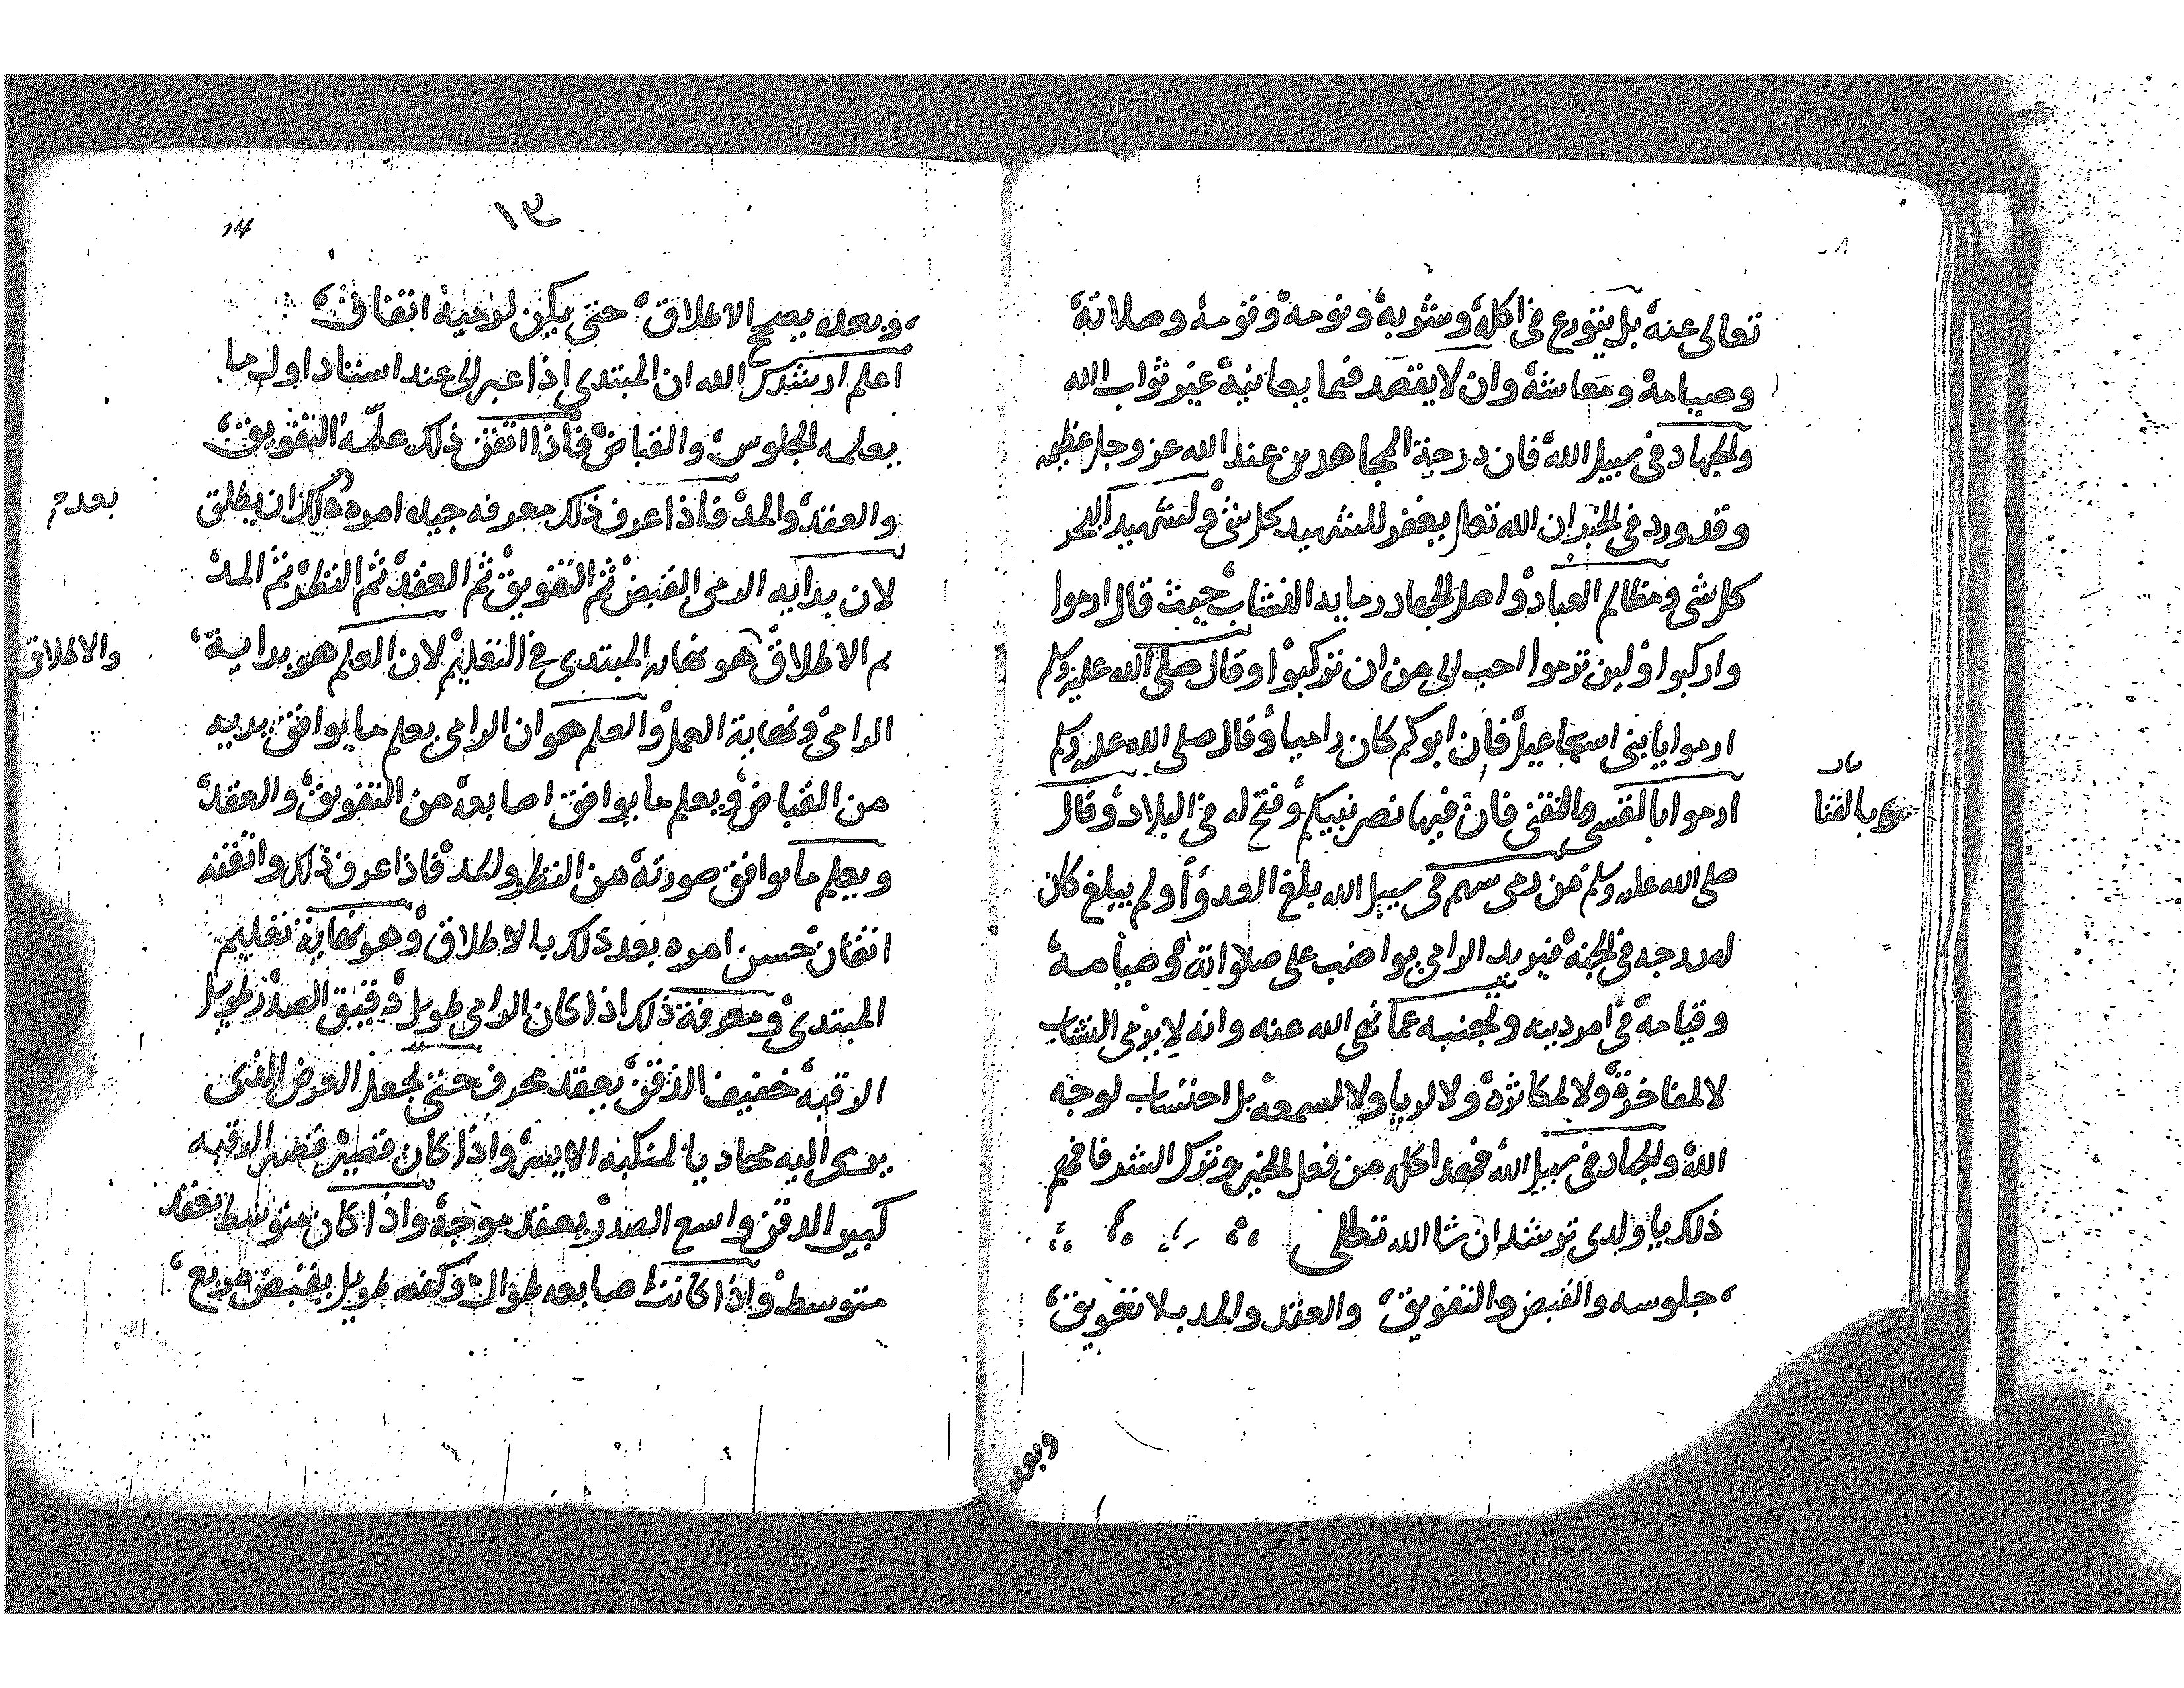 تعالى عنه بل يتورع فى اكله وشربه ونومه وقومه وصلاته
وصيامه ومعاشه وان لا يقصد فيما يعانيه غير ثواب الله
والجهاد فى سبيل الله فان درجة المجاهدين عند الله عز وجل عظيمه
وقد ورد فى الخبر ان الله تعالى يغفر للشهيد كل شى ولشهيد البحر
كل شى ومظالم العباد واصل الجهاد رمايه النشاب حيث قال ارموا
واركبوا ولين ترموا احب الى من ان تركبوا وقال صلى الله عليه وسلم
ارموا يا بنى اسماعيل فان ابوكم كان راميا وقال صلى الله عليه وسلم
ارموا بالقسى والقنى فان فيها نصر نبيكم وفتح له فى البلاد وقال
بالقنا
صلى الله عليه وسلم من رمى سهم فى سبيل الله بلغ العدو أو لم يبلغ كان
له درجه فى الجنة فيريد الرامى يواضب على صلواته وصيامه
وقيامه فى امر دينه وتجنبه عما نهى الله عنه وانه لا يرمى النشاب
لا لمفاخرة ولا لمكاثرة ولا لريا ولا لسمعه بل احتساب لوجه
الله والجهاد فى سبيل الله فهذا كله من فعل الخير وترك الشر فافهم
ذلك يا ولدى ترشد ان شا الله تعالى
جلوسه والقبض والتفويق والعقد والمد بلا تعويق
وبعد
١٣
14
وبعده يصح الاطلاق حتى يكن لرميه اتفاق
اعلم ارشدك الله ان المبتدى اذا عبر الى عند استاد اول ما
يعلمه الجلوس والقباض فاذا اتقن ذلك علمه التفويق
والعقد والمد فاذا عرف ذلك معرفه جيده امره ذلك ان يطلق
بعد
لان بدايه الرمى القبض ثم التفويق ثم العقد ثم النظر ثم المد
ثم الاطلاق هو نهايه المبتدى فى التعليم لان العلم هو بداية
والاطلاق
الرامى ونهاية العمل والعلم هو ان الرامى يعلم ما يوافق يديه
من القباض ويعلم ما يوافق اصابعه من التفويق والعقد
ويعلم ما يوافق صورته من النظر والمد فاذا عرف ذلك واتقنه
اتقان حسن امره بعد ذلك بالاطلاق وهو نهاية تعليم
المبتدى ومعرفة ذلك اذا كان الرامى طويل دقيق الصدر طويل
الرقبه خفيف الذقن يعقد محرف حتى يجعل الغرض الذى
يرمى اليه محاديا لمنكبه الايسر واذا كان قصير قصر الرقبه
كبير الدقن واسع الصدر يعقد موجه واذا كان متوسط يعقد
متوسط واذا كانت اصابعه طوال وكفه طويل يقبض مربع